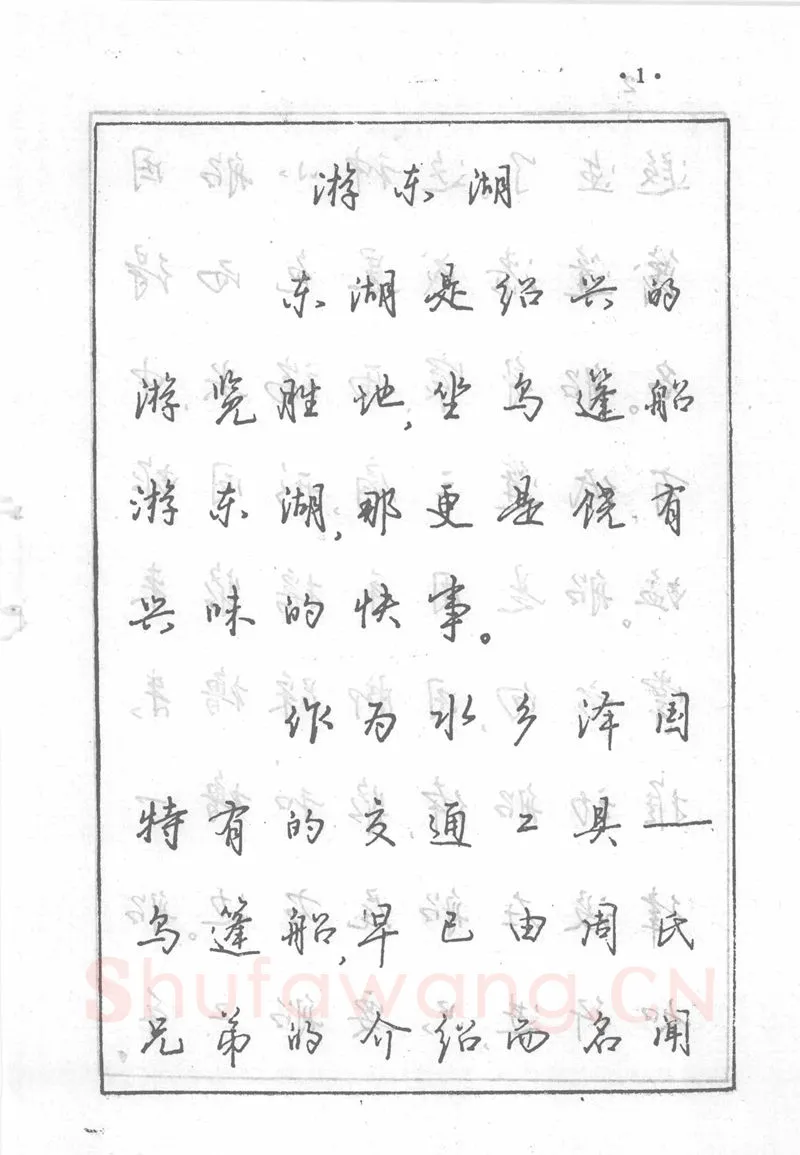 ·1·
游东湖
东湖是绍兴的
游览胜地,坐乌篷船
游东湖,那更是饶有
兴味的快事。
作为水乡泽国
特有的交通工具——
乌篷船,早已由周氏
兄弟的介绍而名闻
Shufawang.CN